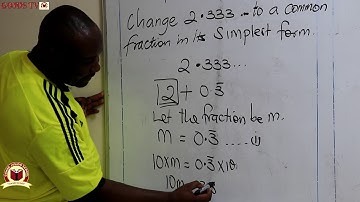 GOODS TV
Change 2.333... to a common
fraction in its Simplest form.
2.333...
2 + 0.3̄
Let the fraction be m.
m = 0.3̄ .....(1)
10×m = 0.3̄×10
10m =